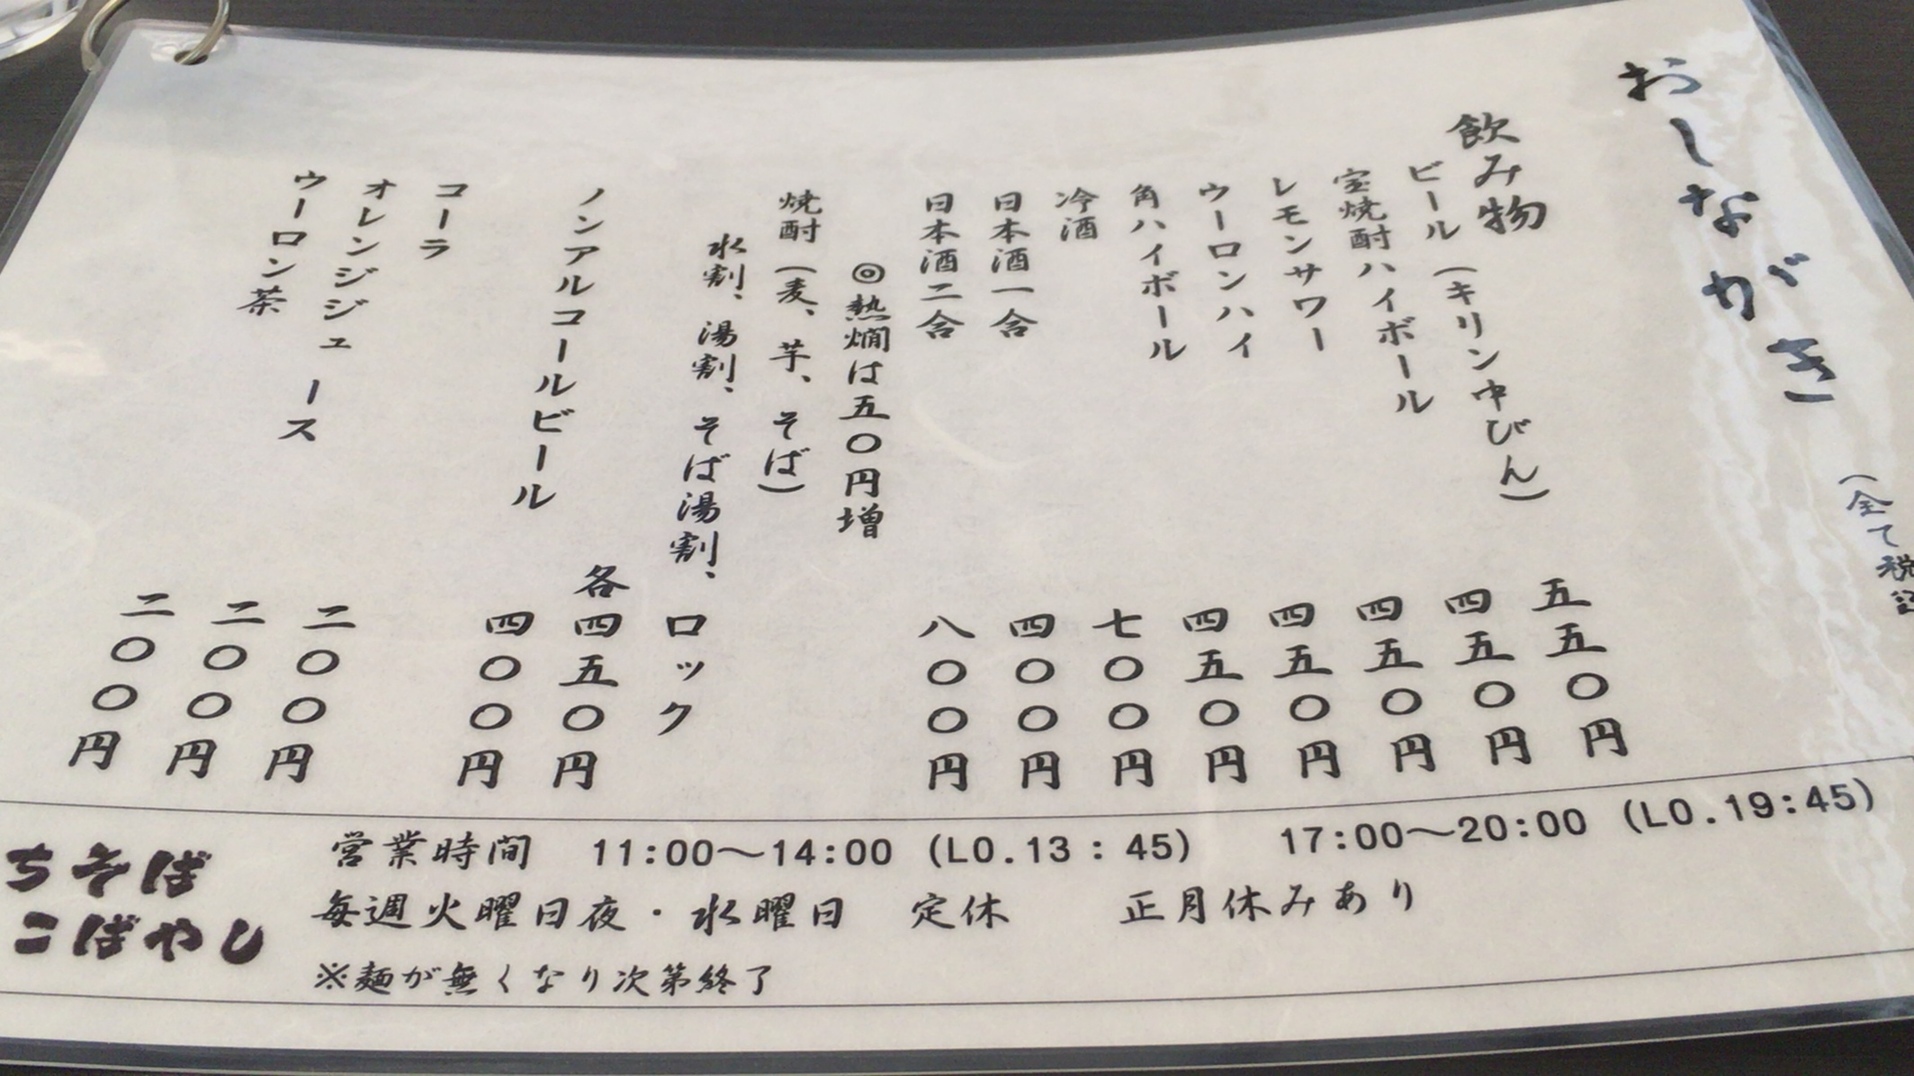 おしながき
(全て税
飲み物
ビール(キリン中びん) 五五〇円
宝焼酎ハイボール 四五〇円
レモンサワー 四五〇円
ウーロンハイ 四五〇円
角ハイボール 四五〇円
冷酒 七〇〇円
日本酒一合 四〇〇円
日本酒二合 八〇〇円
◎熱燗は五〇円増
焼酎(麦、芋、そば)
水割、湯割、そば湯割、ロック
各四五〇円
ノンアルコールビール 四〇〇円
コーラ 二〇〇円
オレンジジュース 二〇〇円
ウーロン茶 二〇〇円
営業時間 11:00〜14:00 (LO.13:45) 17:00〜20:00 (LO.19:45)
毎週火曜日夜・水曜日 定休 正月休みあり
※麺が無くなり次第終了
ちそば
こばやし